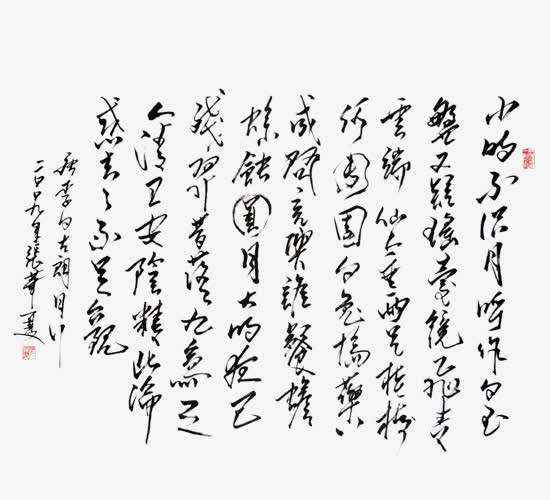 小时不识月呼作白玉
盤又疑瑶臺镜飛青
雲端仙人垂两足桂樹
何團團白兔搗藥
成問言與誰餐蟾
蜍蝕圓月大明夜已
殘羿昔落九烏天
人清且安陰精此淪
惑去去不足觀
李白古朗月行
二〇〇九年張